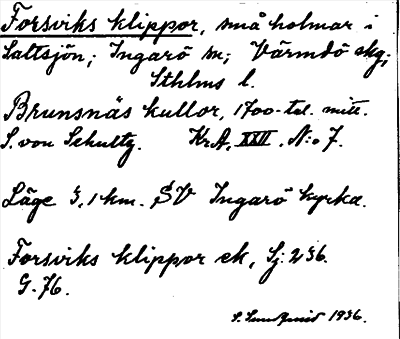 Forsviks klippor, små holmar i
Saltsjön; Ingarö sn; Värmdö skg;
Sthlms l.
Brunsnäs kullor, 1700-tal. mitt.
S. von Schultz. KrA, XXII. N:o 7.
Läge 3,1 km. SV Ingarö kyrka.
Forsviks klippor ek, Sj: 236.
G. 76.
S. 1936.